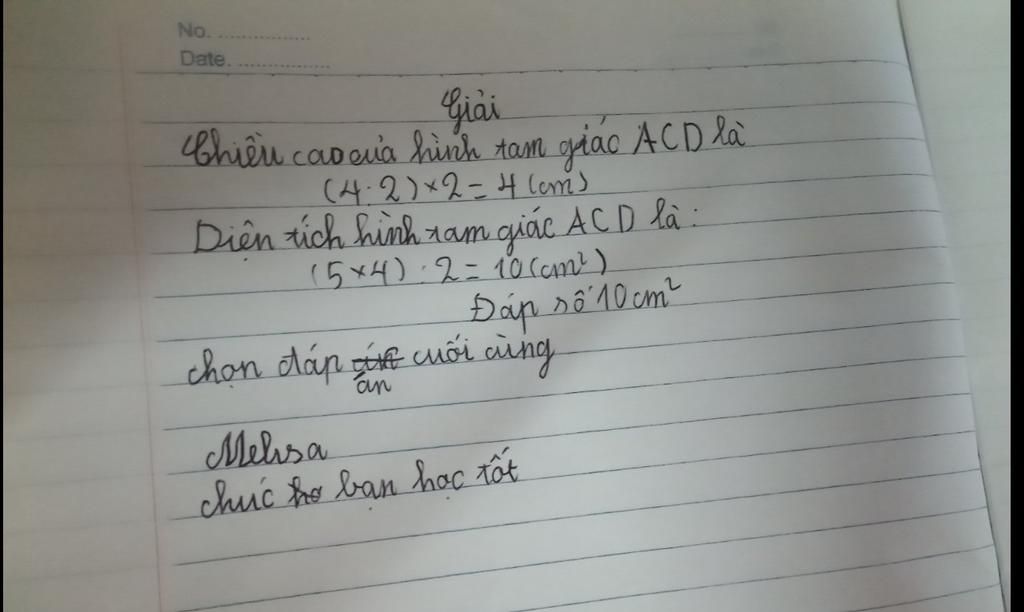 No. ................
Date. ................
Giải
Chiều cao của hình tam giác ACD là
(4:2)×2=4(cm)
Diện tích hình tam giác ACD là:
(5×4):2=10(cm²)
Đáp số 10cm²
chọn đáp án cuối cùng
Melisa
chúc bạn học tốt